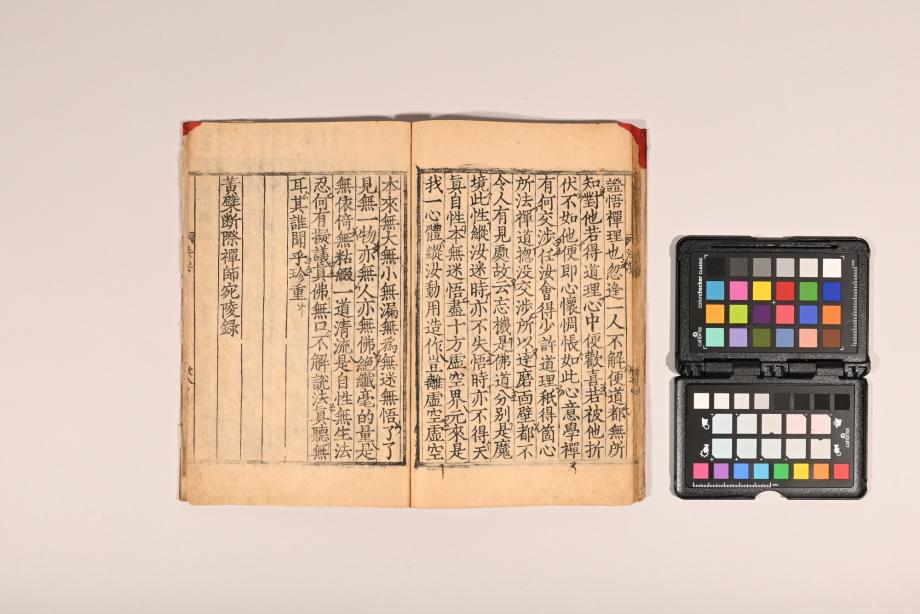 證悟禪理也忽逢一人不解便道都無所
知對他若得道理心中便歡喜若被他折
伏不如他便即心懷惆悵如此心意學禪
有何交涉任汝會得少許道理秖得箇心
所法禪道揔沒交涉所以達磨面壁都不
令人有見處故云忘機是佛道分別是魔
境此性縱汝迷時亦不失悟時亦不得天
眞自性本無迷悟盡十方虛空界元來是
我一心體縱汝動用造作豈離虛空虛空
本來無大無小無漏無爲無迷無悟了了
見無一物亦無人亦無佛絕纖毫的量是
無依倚無粘綴一道清流是自性無生法
忍何有擬議眞佛無口不解說法眞聽無
耳其誰聞乎珍重
黃檗斷際禪師宛陵錄
calibrite
colorchecker CLASSIC
calibrite